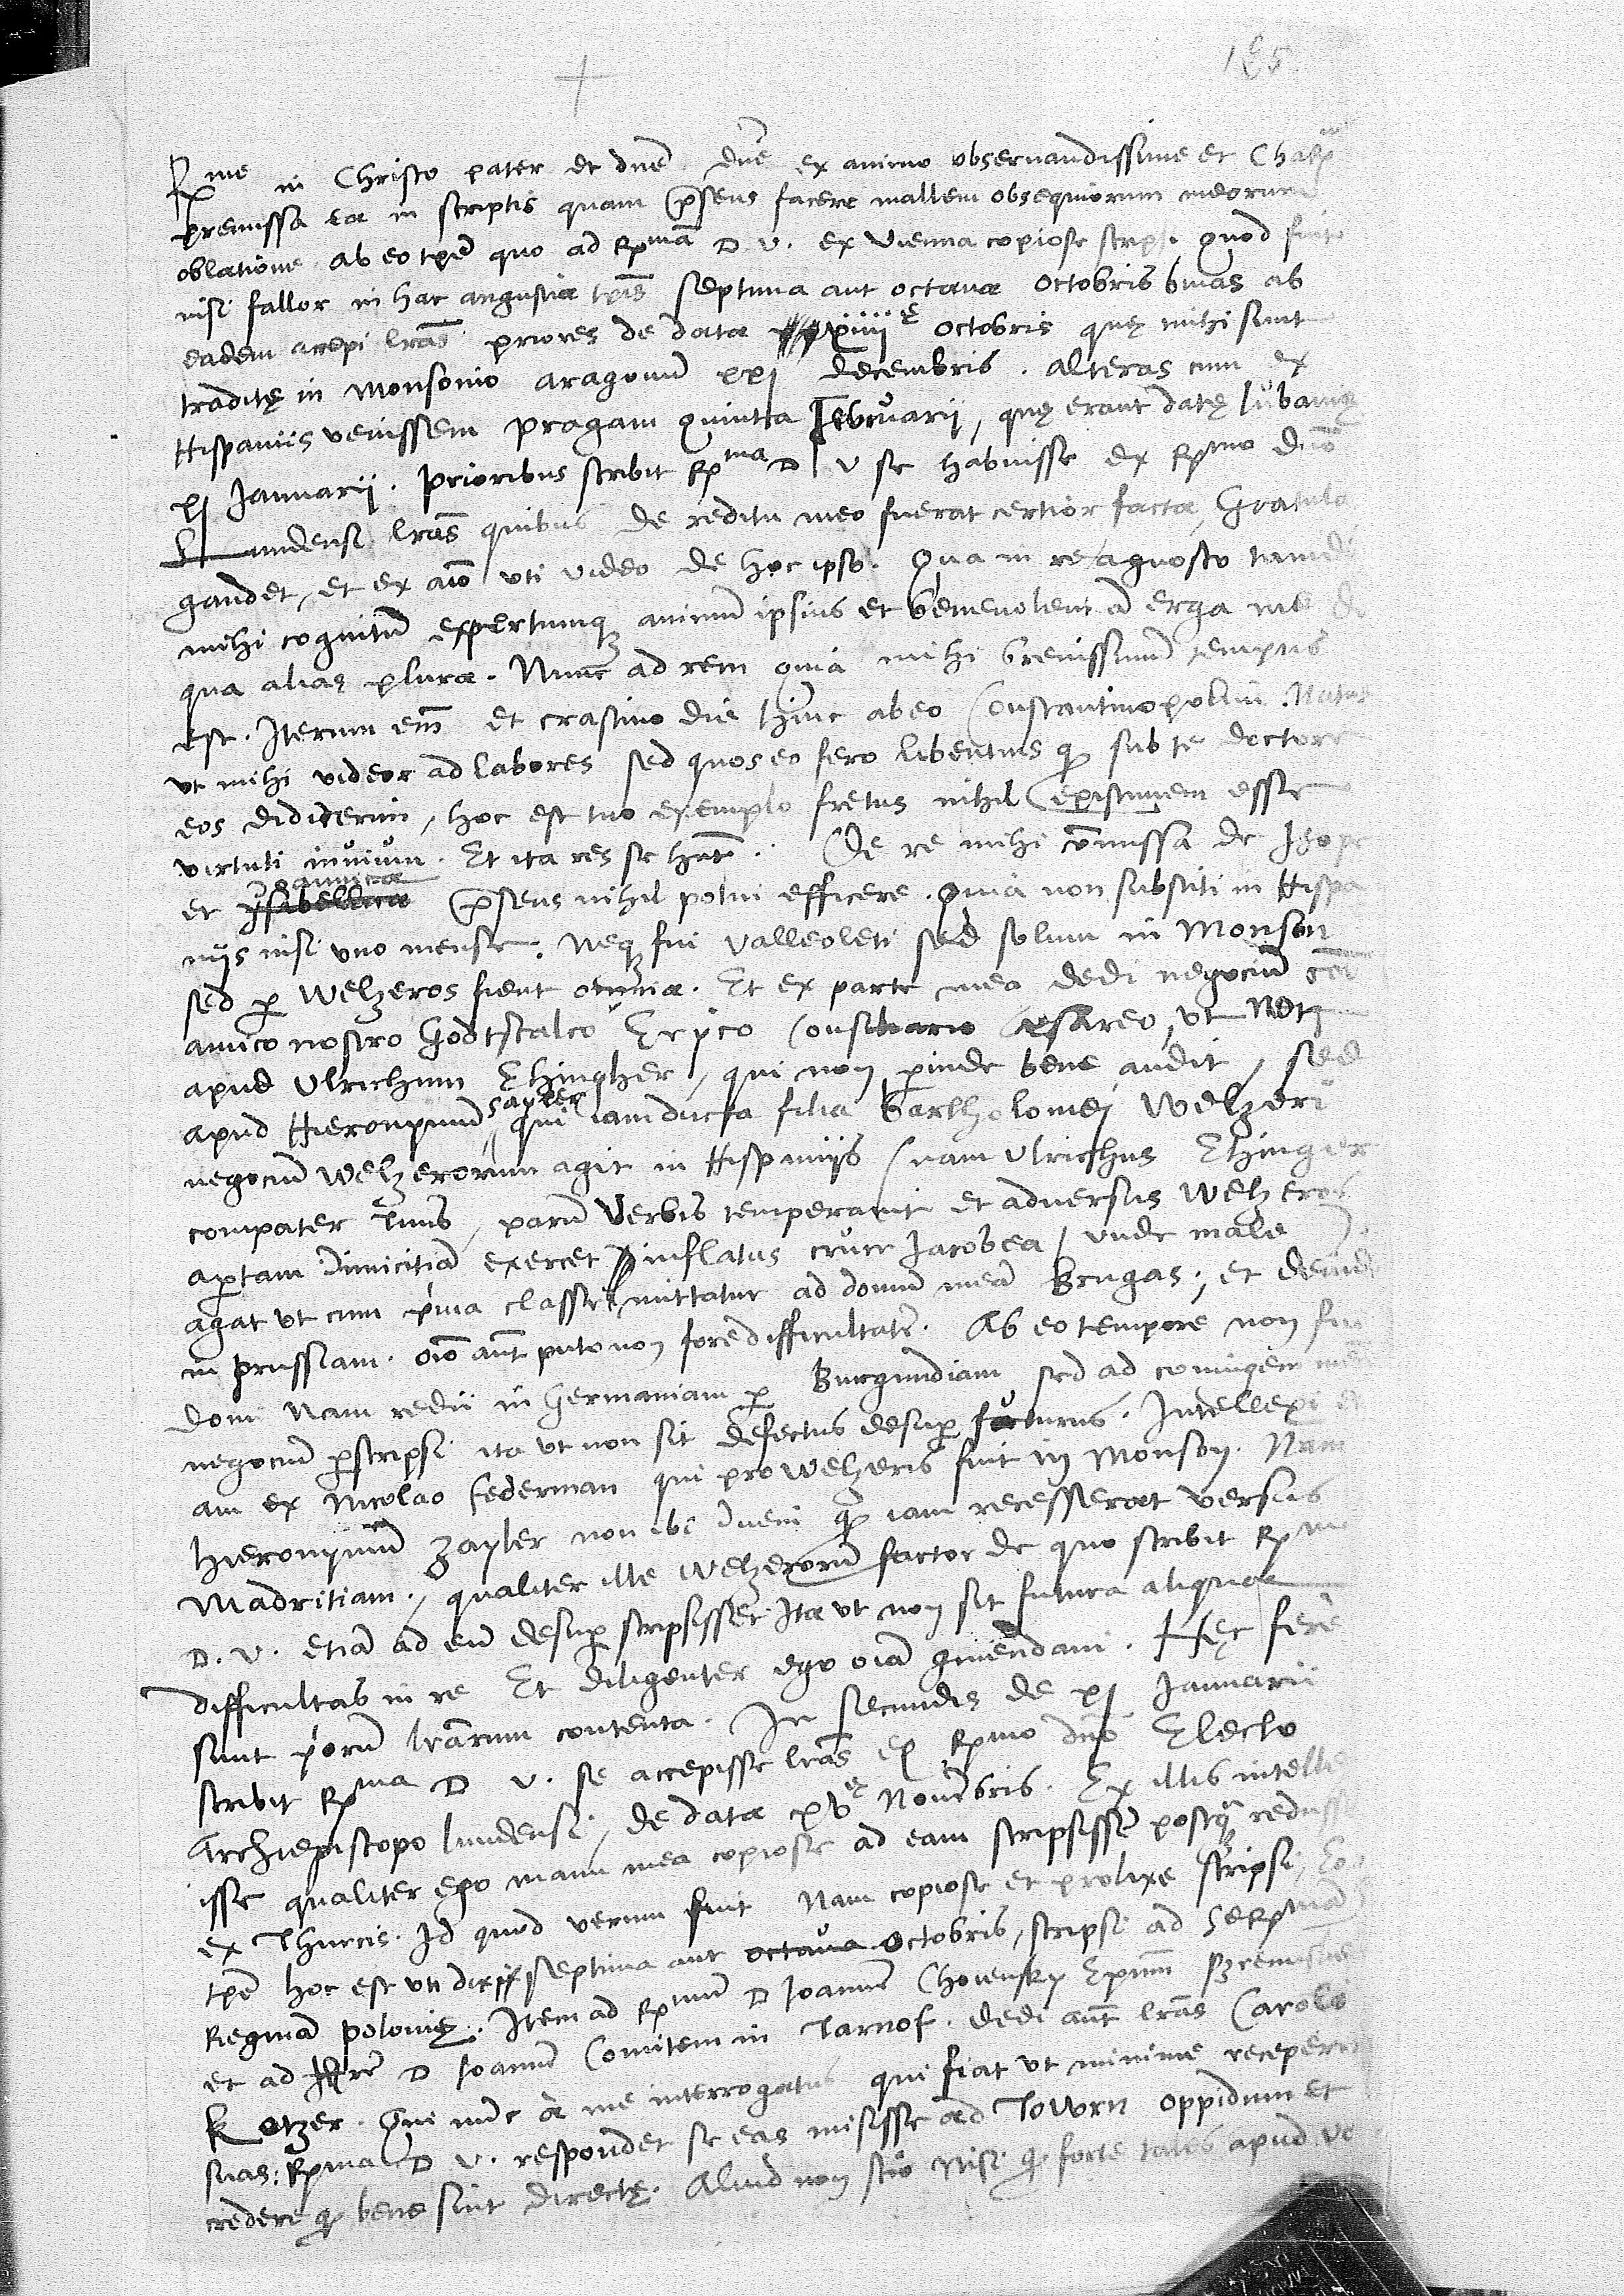 185
R.me in Christo pater et dne dne ex animo observandissime et Char.me
premissa ea in scriptis quam p̄sens facere mallem obsequiorum meorum
oblatione ab eo tp̄e quo ad R.mā D. V. ex Vienna copiose scripsi quod fuit
nisi fallor in hac angustia tp̄is septima aut octava octobris binas ab
eadem accepi l̄ras priores de data xiiii octobris quę mihi sunt
traditę in Monsonio aragonum xxj decembris. alteras cum ex
Hispaniis venissem pragam quinta Februarij, quę erant datę lubavię
xj Januarij. Prioribus scribit R.ma D V se habuisse ex R.mo dno
Lundensi l̄ras quibus de reditu meo fuerat certior facta, Gratula
gaudet, et ex aīo uti video de hoc ipso. Qua in re agnosco tamdiu
mihi cognitum expertumq animum ipsius et benevolentiā erga me de
qua alias plura. Nunc ad rem quia mihi brevissimum tempus
est. Iterum em̄ et crastino die hinc abeo Constantinopolim. Natus
ut mihi videor ad labores sed quos eo fero libentius q sub te doctore
eos didicerim, hoc est tuo exemplo fretus nihil existimem esse
virtuti invium. Et ita res se hn̄t. De re mihi cōmissa de Jhope
et Ysabellica Joannica p̄sens nihil potui efficere. Quia non substiti in Hispa
niis nisi uno mense. Neq fui Valleoleti sed solum in Monson
sed p Welzeros fient omnia. Et ex parte mea dedi negocium cōi
amico nostro Godtscalco Eryco Consiliario Cesareo, ut
apud Ulrichum Ehingher, qui non perinde bene audit, sed
apud Hieronymum Sayler qui iam ducta filia Bartholomei Welzeri
negocium Welzerorum agit in Hispaniis (nam Ulrichus Ehinger
compater tuus, parum verbis temperavit et adversus Welzeros
apertam inimicitiā exercet inflatus cruce Jacobea, unde male)
agat ut cum prima classe mittatur ad domum meā Brugas, et deinde
in Prussiam. oīo aut puto non fore difficultatē. Ab eo tempore non fui
domi nam redii in Germaniam p Burgundiam sed ad coniugem meā
negocium pscripsi ita ut non sit defectus desup futurus. Intellexi et
am ex Nicolao Federman qui pro Welzeris fuit in Monson. Nam
Hieronymum Zayler non ibi inveni q iam recesserat versus
Madritiam, qualiter ille Welzerorum factor de quo scribit R.ma
D. V. etiā ad eum desup scripsisset. Ita ut non sit futura aliqua
difficultas in re Et diligenter ego oīa Hęc fere
sunt priorum l̄rarum contenta. In secundis de xj Januarij
scribit R.ma D V. se accepisse l̄ras ex R.mo dno Electo
Archiepiscopo lundensi, de data xv Novēbris. Ex illis intellex
isse qualiter ego manu mea copiose ad eam scripsissem postq rediissem
ex Thurcis. Id quod verum fuit Nam copiose et prolixe scripsi, eo
tp̄e hoc est uti dixi septima aut octava octobris, scripsi ad Se.R.mā
Reginā Polonię. Item ad R.mum D Joannem Choiensky Ep̄um Przemisliensem
et ad D Joannem Comitem in Tarnof. dedi aut l̄ras Carolo
Kotzer. Qui nunc a me interrogatus qui fiat ut minime receperit
suas R.ma D V. respondet se eas misisse ad Towrn oppidum et
credere q bene sint directę. Aliud non scio nisi q forte tales apud vo